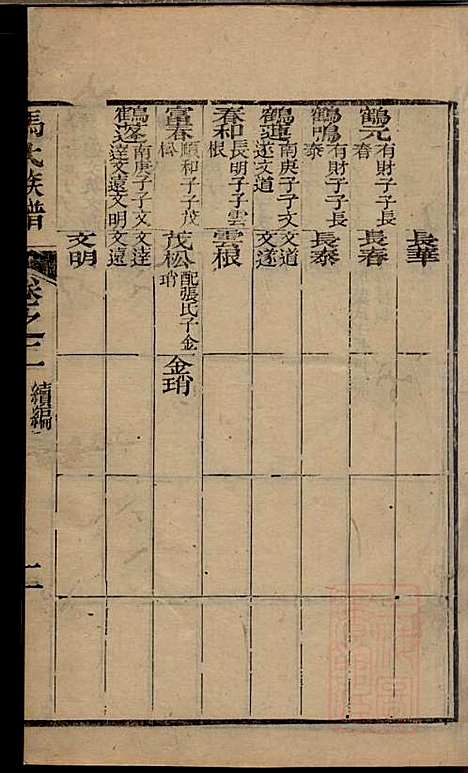 長華
鶴元 有財子子長春
長春
鶴鳴 有財子子長泰
長泰
鶴連 南庚子子文道文遂
文道
文遂
春和 長明子子雲根
雲根
富春 順和子子茂松
茂松 配張氏子金琑
金琑
鶴蓬 南庚子子文逹文遠文明
文逹
文遠
文明
馮氏族譜
卷之二
續編
二